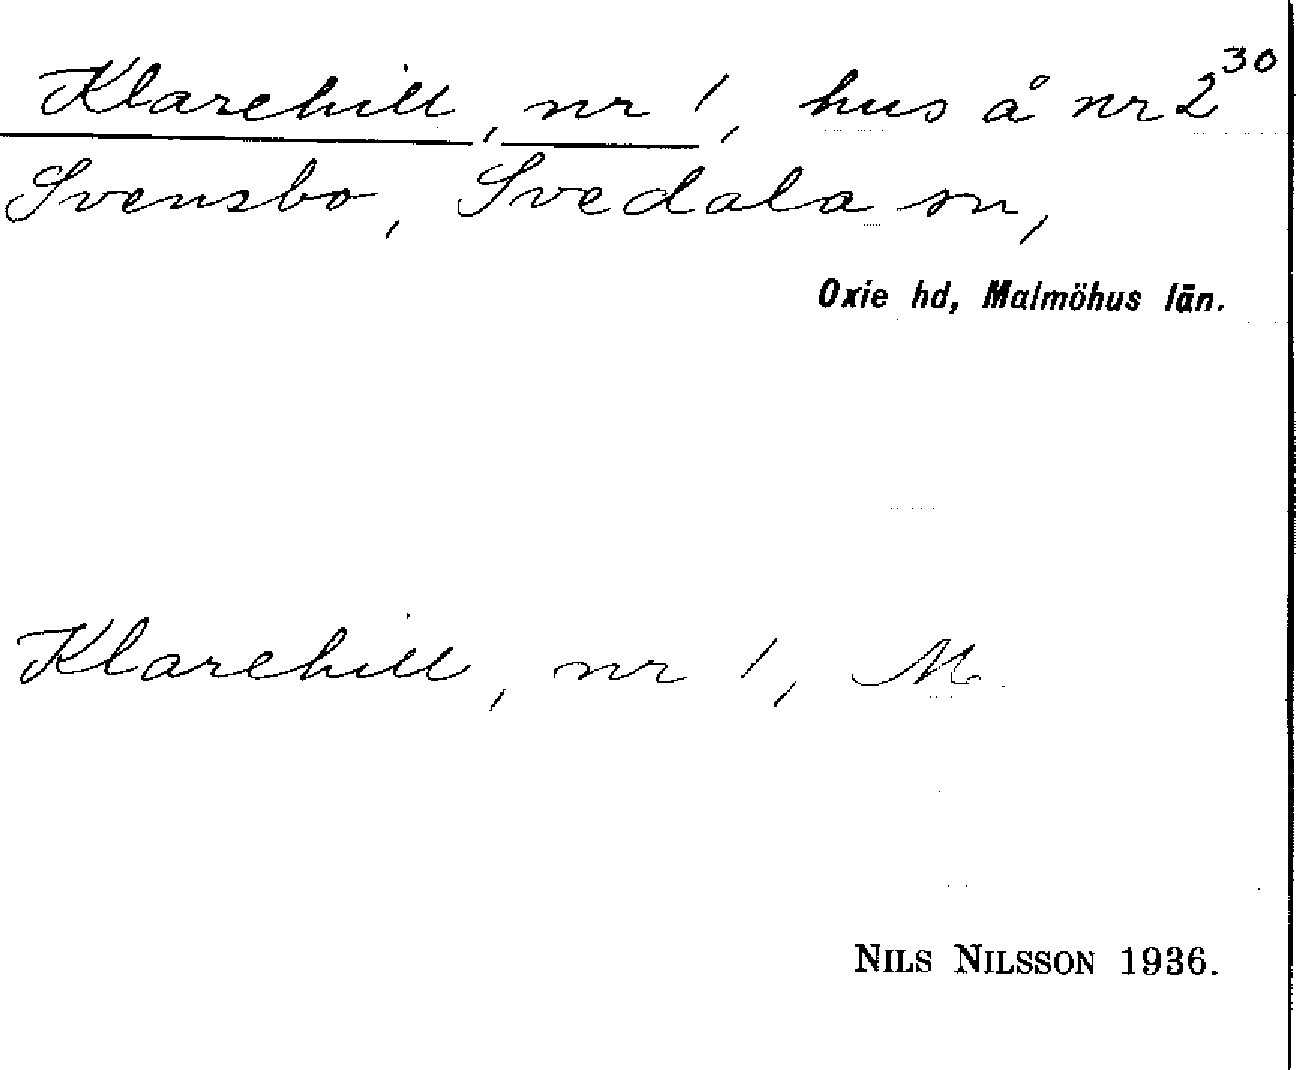 Klarehill, nr 1, hus å nr 2³⁰
Svensbo, Svedala sn,
Oxie hd, Malmöhus län.
Klarehill, nr 1, M.
NILS NILSSON 1936.